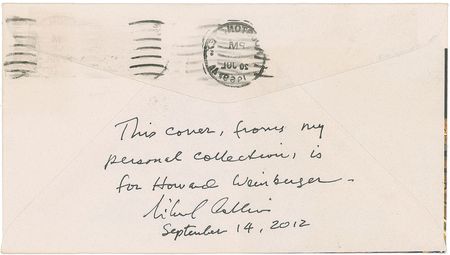 This cover, from my
personal collection, is
for Howard Weinberger -
Michael Collins
September 14, 2012